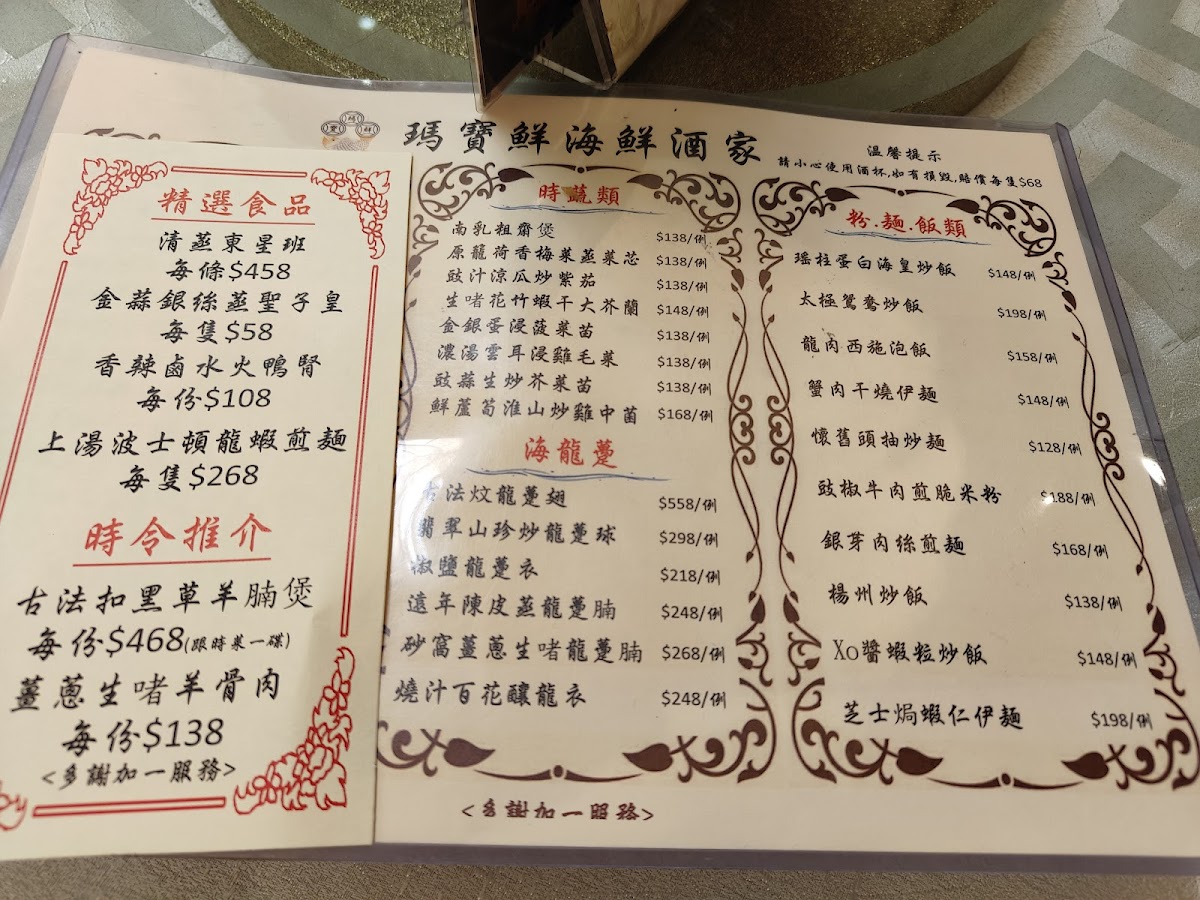 瑪寶鮮海鮮酒家
溫馨提示
請小心使用酒杯,如有損毀,賠償每隻$68
精選食品
清蒸東星班
每條$458
金蒜銀絲蒸聖子皇
每隻$58
香辣鹵水火鴨腎
每份$108
上湯波士頓龍蝦煎麵
每隻$268
時令推介
古法扣黑草羊腩煲
每份$468(跟時菜一碟)
薑蔥生啫羊骨肉
每份$138
<多謝加一服務>
時蔬類
南乳粗齋煲 $138/例
原籠荷香梅菜蒸菜芯 $138/例
豉汁涼瓜炒紫茄 $138/例
生啫花竹蝦干大芥蘭 $148/例
金銀蛋浸菠菜苗 $138/例
濃湯雲耳浸雞毛菜 $138/例
豉蒜生炒芥菜苗 $138/例
鮮蘆筍淮山炒雞中菌 $168/例
海龍躉
古法炆龍躉翅 $558/例
翡翠山珍炒龍躉球 $298/例
椒鹽龍躉衣 $218/例
遠年陳皮蒸龍躉腩 $248/例
砂窩薑蔥生啫龍躉腩 $268/例
燒汁百花釀龍衣 $248/例
粉.麵.飯類
瑤柱蛋白海皇炒飯 $148/例
太極鴛鴦炒飯 $198/例
龍肉西施泡飯 $158/例
蟹肉干燒伊麵 $148/例
懷舊頭抽炒麵 $128/例
豉椒牛肉煎脆米粉 $188/例
銀芽肉絲煎麵 $168/例
揚州炒飯 $138/例
Xo醬蝦粒炒飯 $148/例
芝士焗蝦仁伊麵 $198/例
<多謝加一服務>